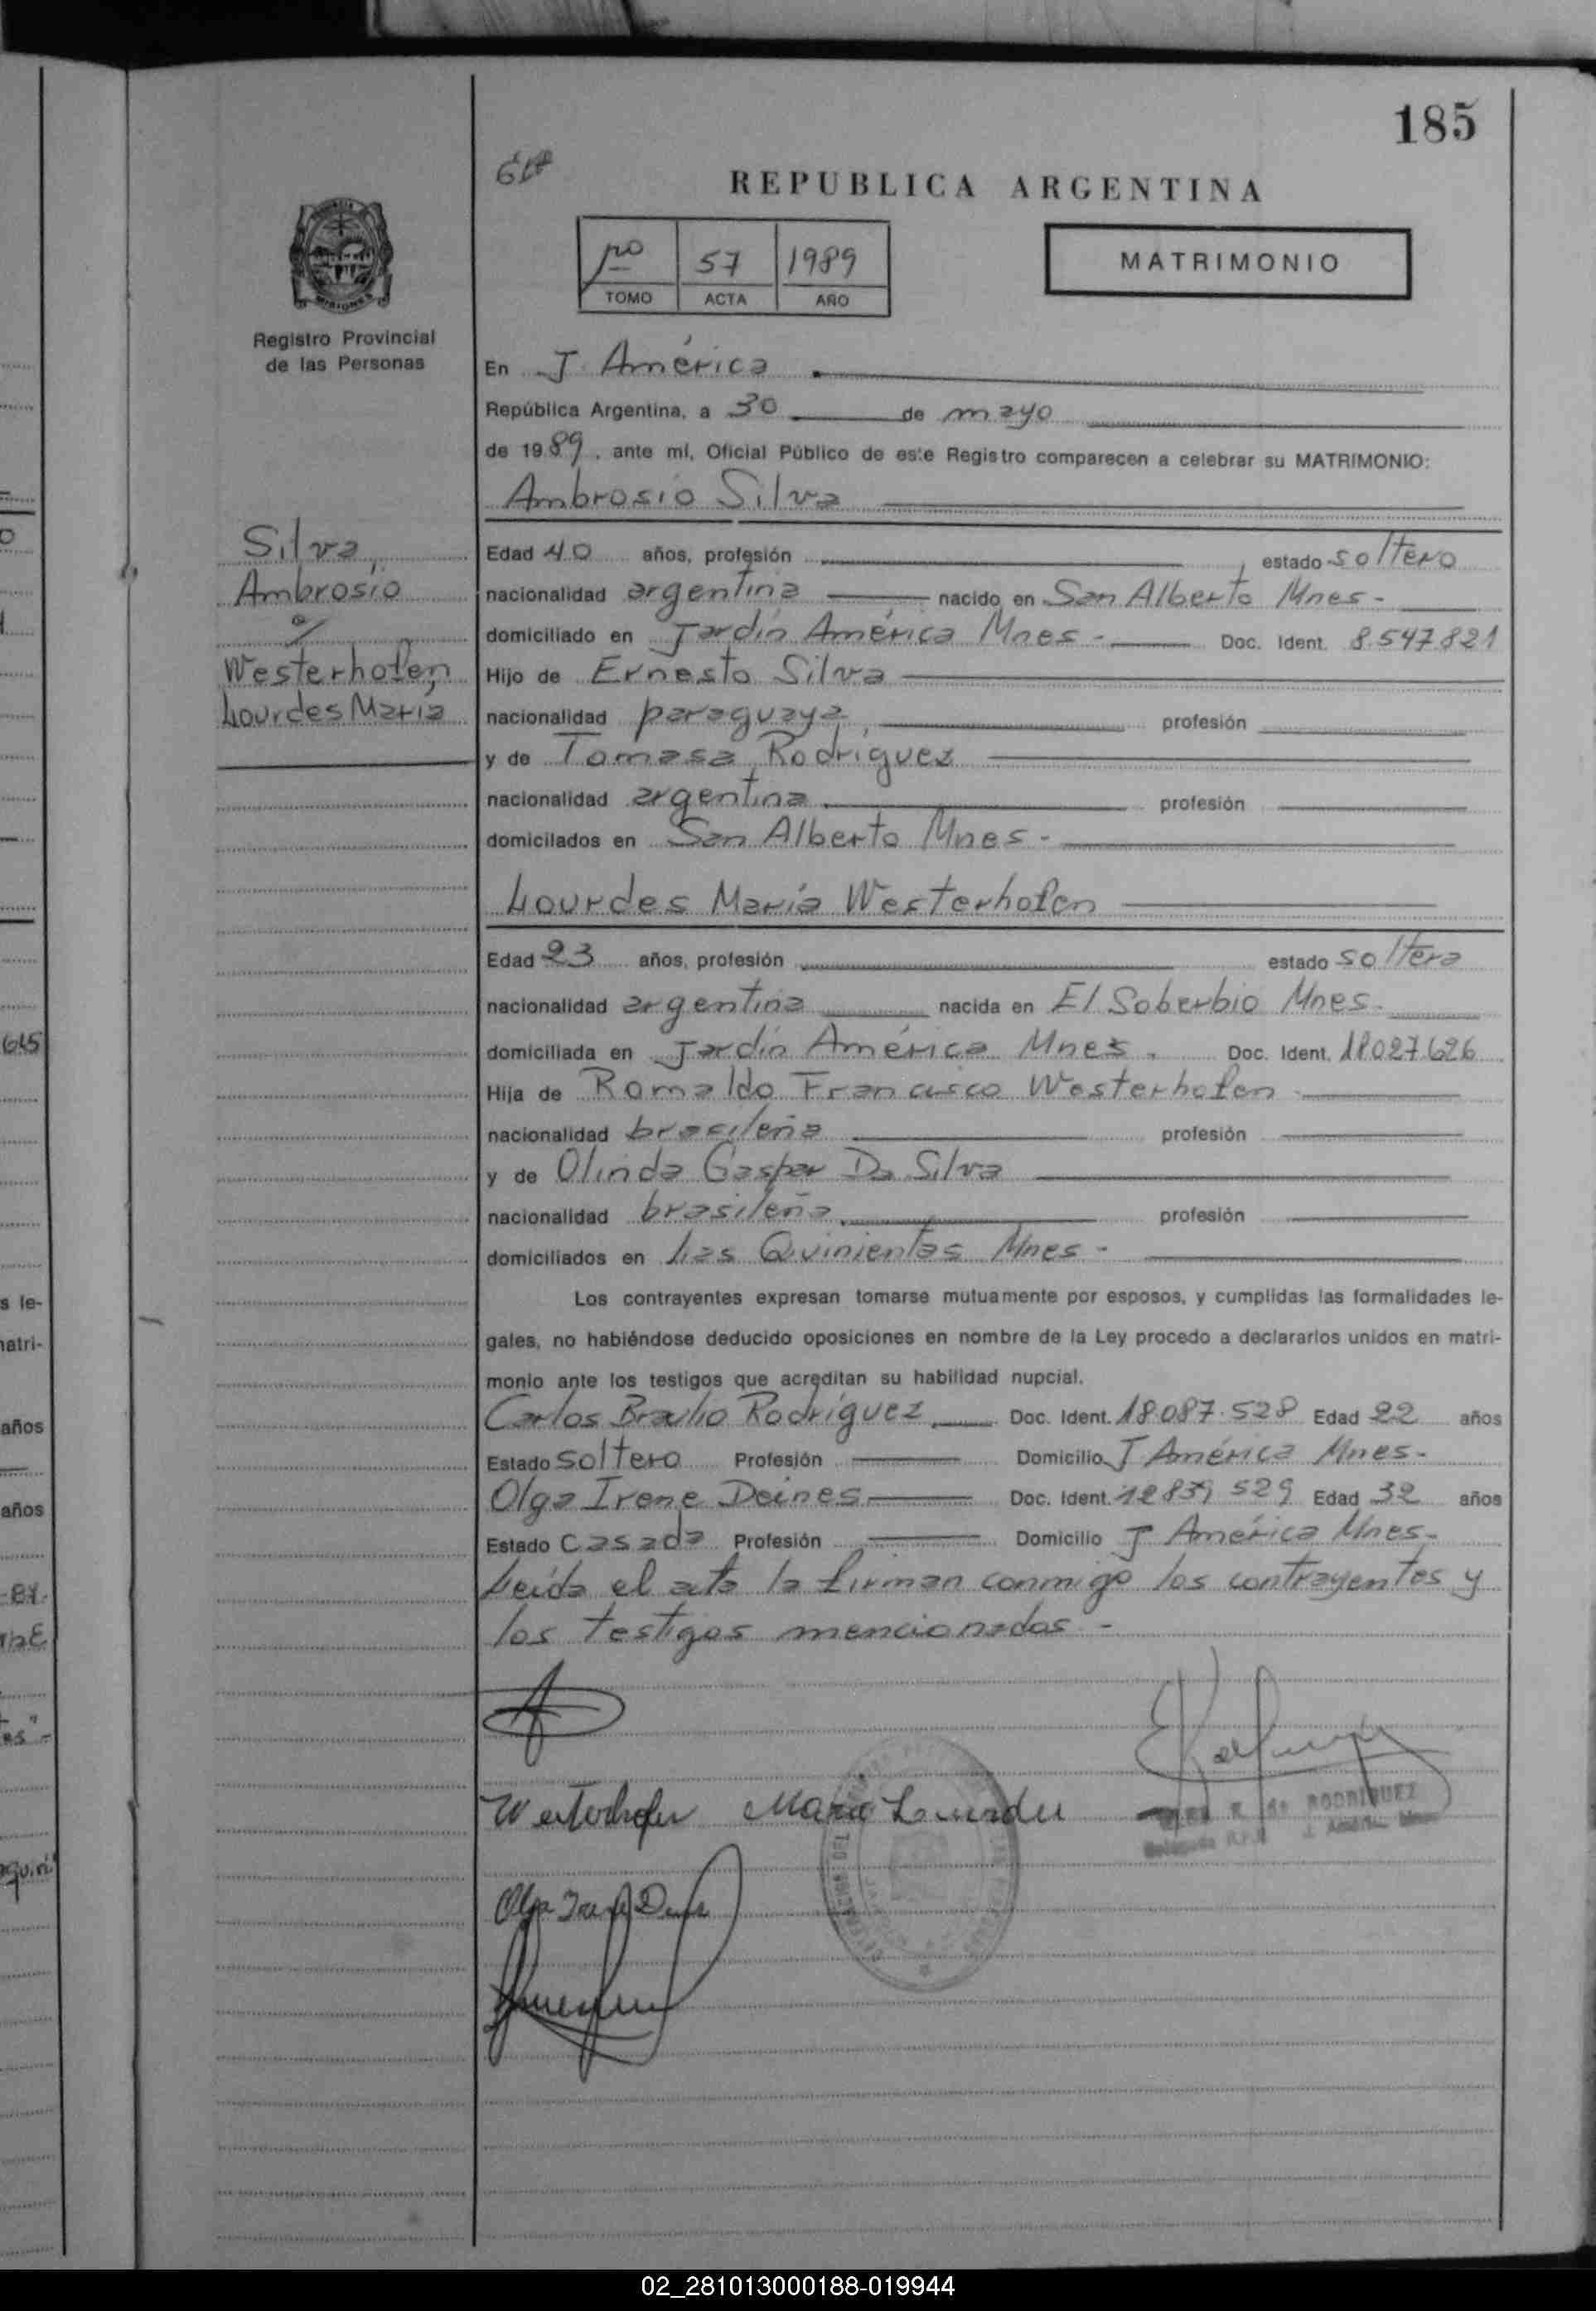 185
REPUBLICA ARGENTINA
57 1989
TOMO ACTA AÑO
MATRIMONIO
MISIONES
Registro Provincial
de las Personas
En J. América
República Argentina, a 30 de mayo
de 1989, ante mí, Oficial Público de este Registro comparecen a celebrar su MATRIMONIO:
Ambrosio Silva
Silva,
Ambrosio
%
Westerhofen,
Lourdes María
Edad 40 años, profesión estado soltero
nacionalidad argentina nacido en San Alberto Mnes-
domiciliado en Jardín América Mnes- Doc. Ident. 8.547821
Hijo de Ernesto Silva
nacionalidad paraguaya, profesión
y de Tomasa Rodríguez
nacionalidad argentina profesión
domicilados en San Alberto Mnes-
Lourdes María Westerhofen
Edad 23 años, profesión estado soltera
nacionalidad argentina nacida en El Soberbio Mnes-
domiciliada en Jardín América Mnes. Doc. Ident. 18027.626
Hija de Romaldo Francisco Westerhofen
nacionalidad brasileña profesión
y de Olinda Gaspar Da Silva
nacionalidad brasileña profesión
domiciliados en Las Quinientas Mnes-
Los contrayentes expresan tomarse mutuamente por esposos, y cumplidas las formalidades le-
gales, no habiéndose deducido oposiciones en nombre de la Ley procedo a declararlos unidos en matri-
monio ante los testigos que acreditan su habilidad nupcial.
Carlos Braulio Rodríguez Doc. Ident. 18.087.528 Edad 22 años
Estado soltero Profesión Domicilio J América Mnes-
Olga Irene Deines Doc. Ident. 12839529 Edad 32 años
Estado casada Profesión Domicilio J América Mnes-
Leída el acta la firman conmigo los contrayentes y
los testigos mencionados-
Westerhofen María Lourdes
R. de RODRIGUEZ
Olga Irene Deines
645
s le-
matri-
años
años
02_281013000188-019944